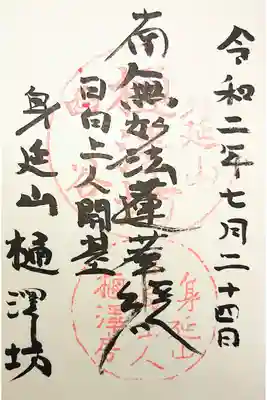 令和二年七月二十四日
南無妙法蓮華經
日向上人開基
身延山 樋澤坊
身延山
身延山
樋澤房